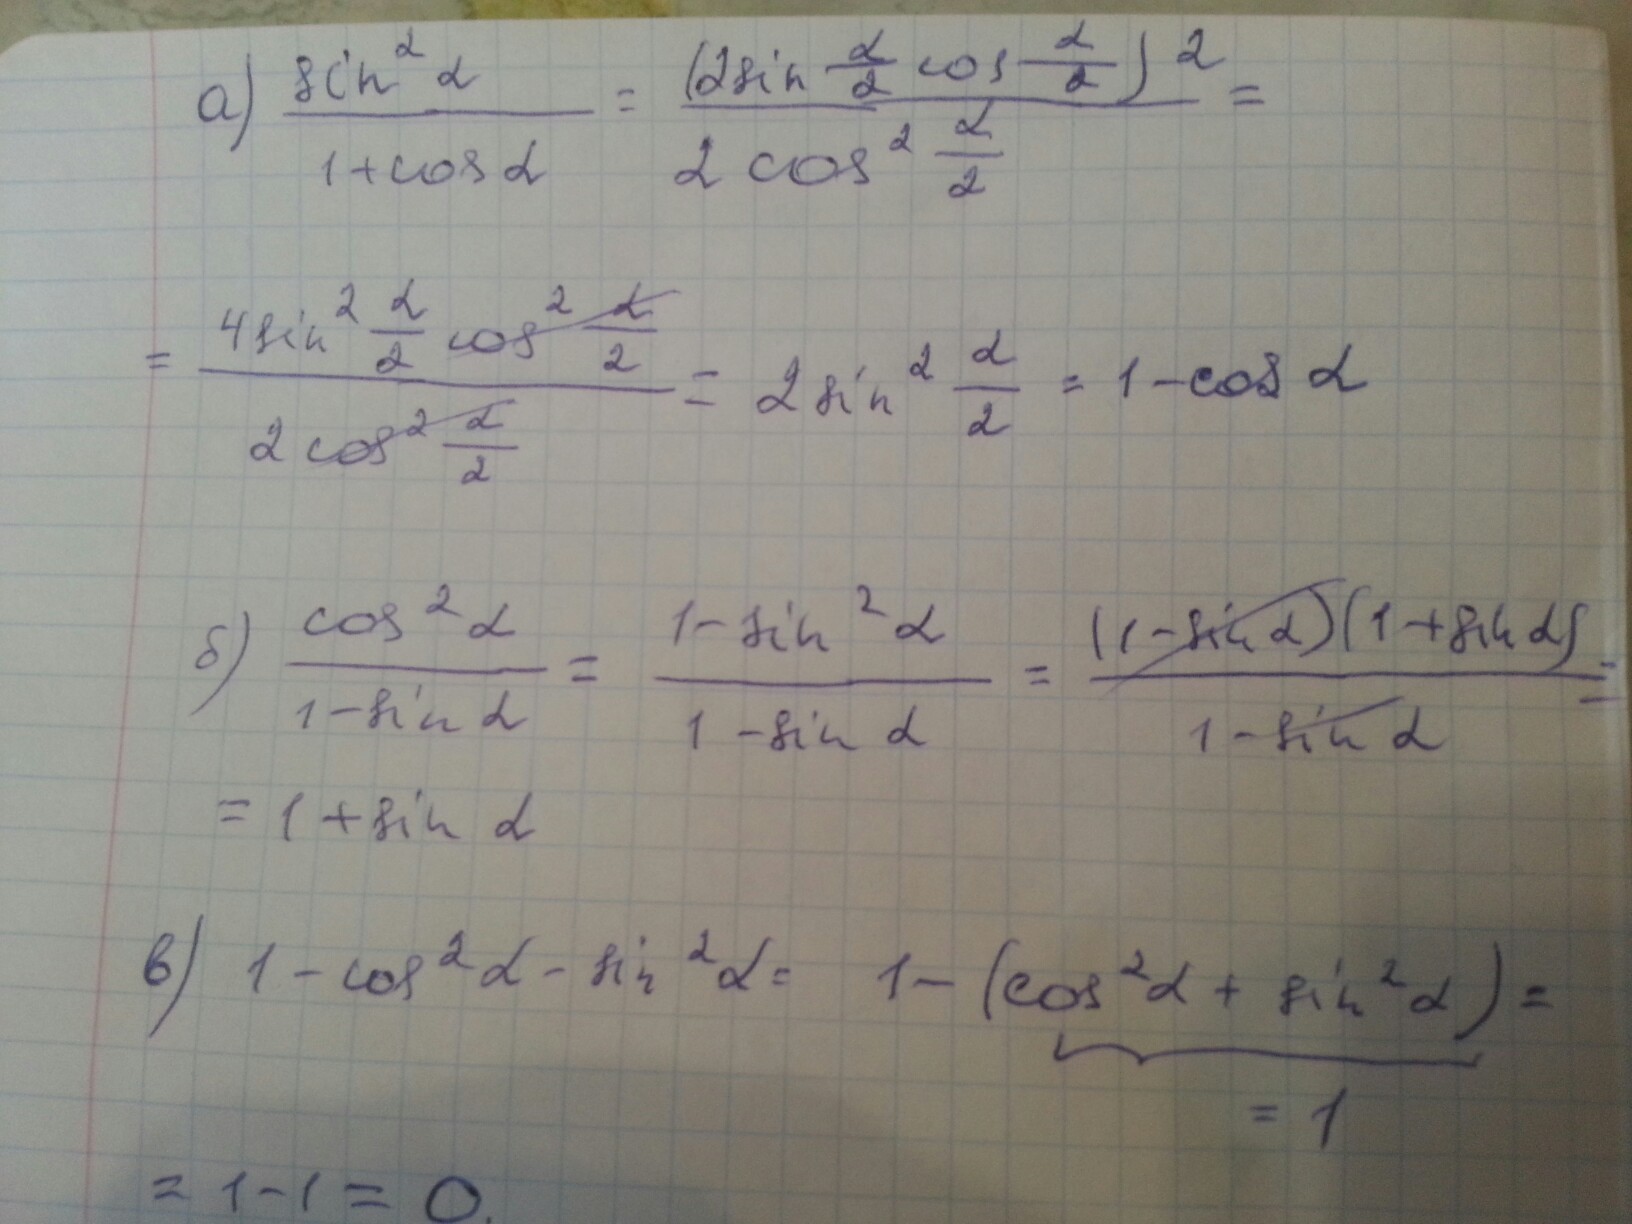 а) sin²α / (1+cos α) = (2sin α/2 cos α/2)² / (2 cos² α/2) =
= (4sin² α/2 cos² α/2) / (2 cos² α/2) = 2 sin² α/2 = 1 - cos α
б) cos²α / (1-sin α) = (1-sin²α) / (1-sin α) = (1-sin α)(1+sin α) / (1-sin α) =
= 1 + sin α
в) 1 - cos²α - sin²α = 1 - (cos²α + sin²α) =
= 1
= 1-1 = 0.